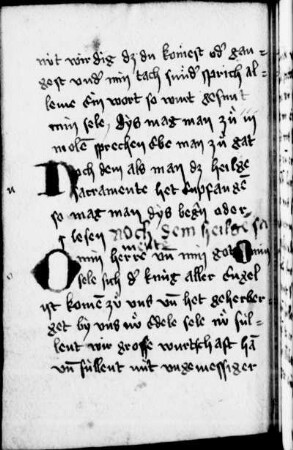 nüt wirdig dz du komest od' gan=
gest vnd' min tach sund' sprich al=
leine ein wort so wirt gesunt
min sele, Dys mag man zů iij
molē sprechen Ebe man zů gat
Noch dem als man dz heilge
Sacramente het Empfangē
so mag man dys begin oder
lesen noch dem heilge sa
O min herre vn min got O min
sele sich d' künig aller Engel
ist komē zů vns vn het geherber=
get by vns nů Edele sele nů sül=
lent wir grosse wurtschaft hā
vn süllent mit vngemessiger